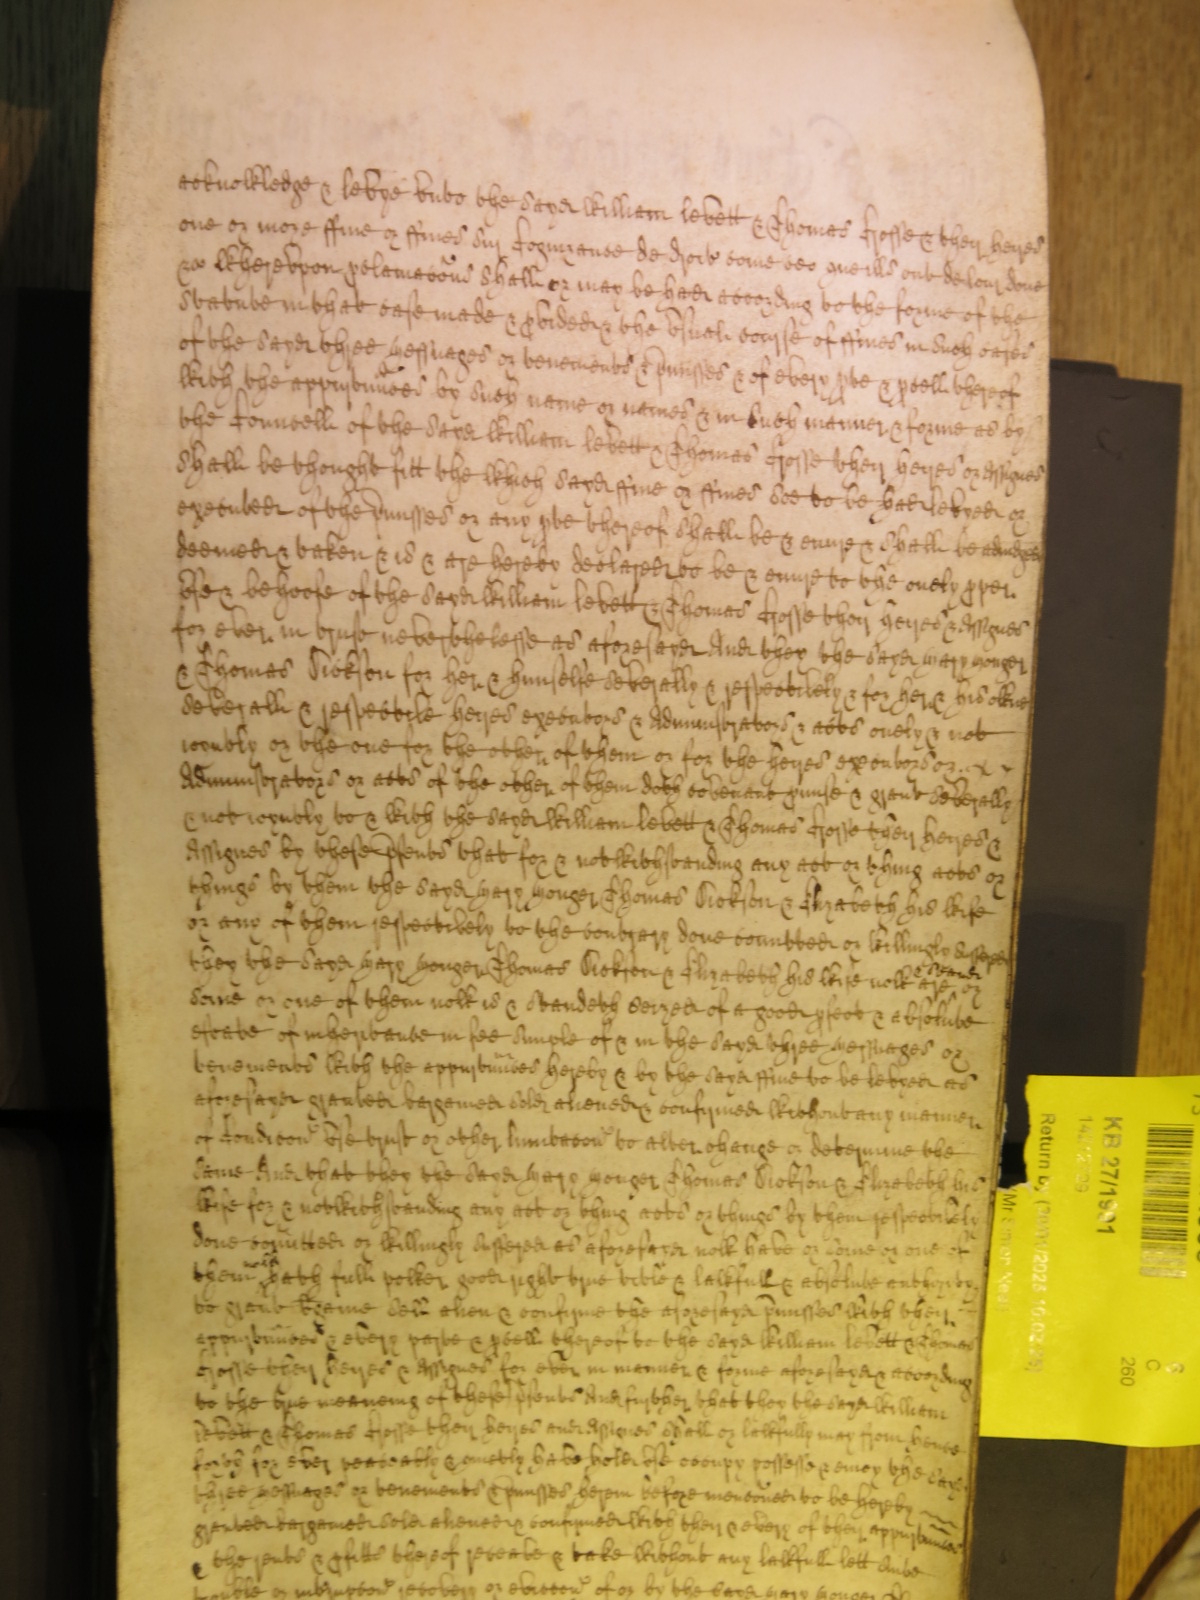 acknowledge & levye unto the sayd William Levett & Thomas Crosse & their heyres
one or more ffine or ffines sur Cognizance de droit come ceo que ills ont de lour done
&c Whereupon pclamacõns shall or may be had according to the forme of the
Statute in that case made & pvided & the usuall course of ffines in such cases
of the sayd three Messuages or tenements & pmisses & of every pte & pcell thereof
With the appurtuñces by such name or names & in such manner & forme as by
the Councell of the sayd William Levett & Thomas Crosse their heyres or Assignes
shall be thought fitt the Which sayd ffine or ffines soe to be had levyed or
executed of the pmisses or any pte thereof shall be & enure & shall be adiudged
deemed & taken & is & are hereby declared to be & enure to the onely pper
use & behoofe of the sayd William Levett & Thomas Crosse their heyres & Assignes
for ever in trust neverthelesse as aforesayd And they the sayd Mary Monger
& Thomas Dickson for her & himselfe severally & respectively & for her & his owne
severall & respective heyres executors & Administrators & acts onely & not
ioyntly or the one for the other of them or for the heyres executors or
Administrators or acts of the other of them doth covenant pmise & grant severally
& not ioyntly to & With the sayd William Levett & Thomas Crosse their heyres &
Assignes by these psents that for & notwithstanding any act or thing acts or
things by them the sayd Mary Monger Thomas Dickson & Elizabeth his Wife
or any of them respectively to the contrary done comitted or Willingly suffered
they the sayd Mary Monger Thomas Dickson & Elizabeth his Wife now are & stand or
some or one of them now is & standeth seized of a good pfect & absolute
estate of inheritance in fee simple of & in the sayd three Messuages or
tenements With the appurtuñces hereby & by the sayd ffine to be levyed as
aforesayd granted bargained sold aliened & confirmed Without any manner
of Condicõn use trust or other limitacõn to alter change or determine the
same And that they the sayd Mary Monger Thomas Dickson & Elizabeth his
Wife for & notwithstanding any act or thing acts or things by them respectively
done comitted or Willingly suffered as aforesayd now have or some or one of
them now hath full power good right true title & lawfull & absolute authority
to grant bargaine sell alien & confirme the aforesayd pmisses With their
appurtuñces & every parte & pcell thereof to the sayd William Levett & Thomas
Crosse their heyres & Assignes for ever in manner & forme aforesayd & according
to the true meaneing of these psents And further that they the sayd William
Levett & Thomas Crosse their heyres and Assignes shall or lawfully may from hence
forth for ever peaceably & quietly have hold use occupy possesse & enioy the sayd
three Messuages or tenements & pmisses herein before menconed to be hereby
granted bargained sold aliened & confirmed With their & every of their appurtuñces
& the rents & pfitts thereof receave & take Without any lawfull lett suite
trouble or interupcõn recovery or eviccõn of or by the sayd Mary Monger
KB 27/1901
Return by
260
C